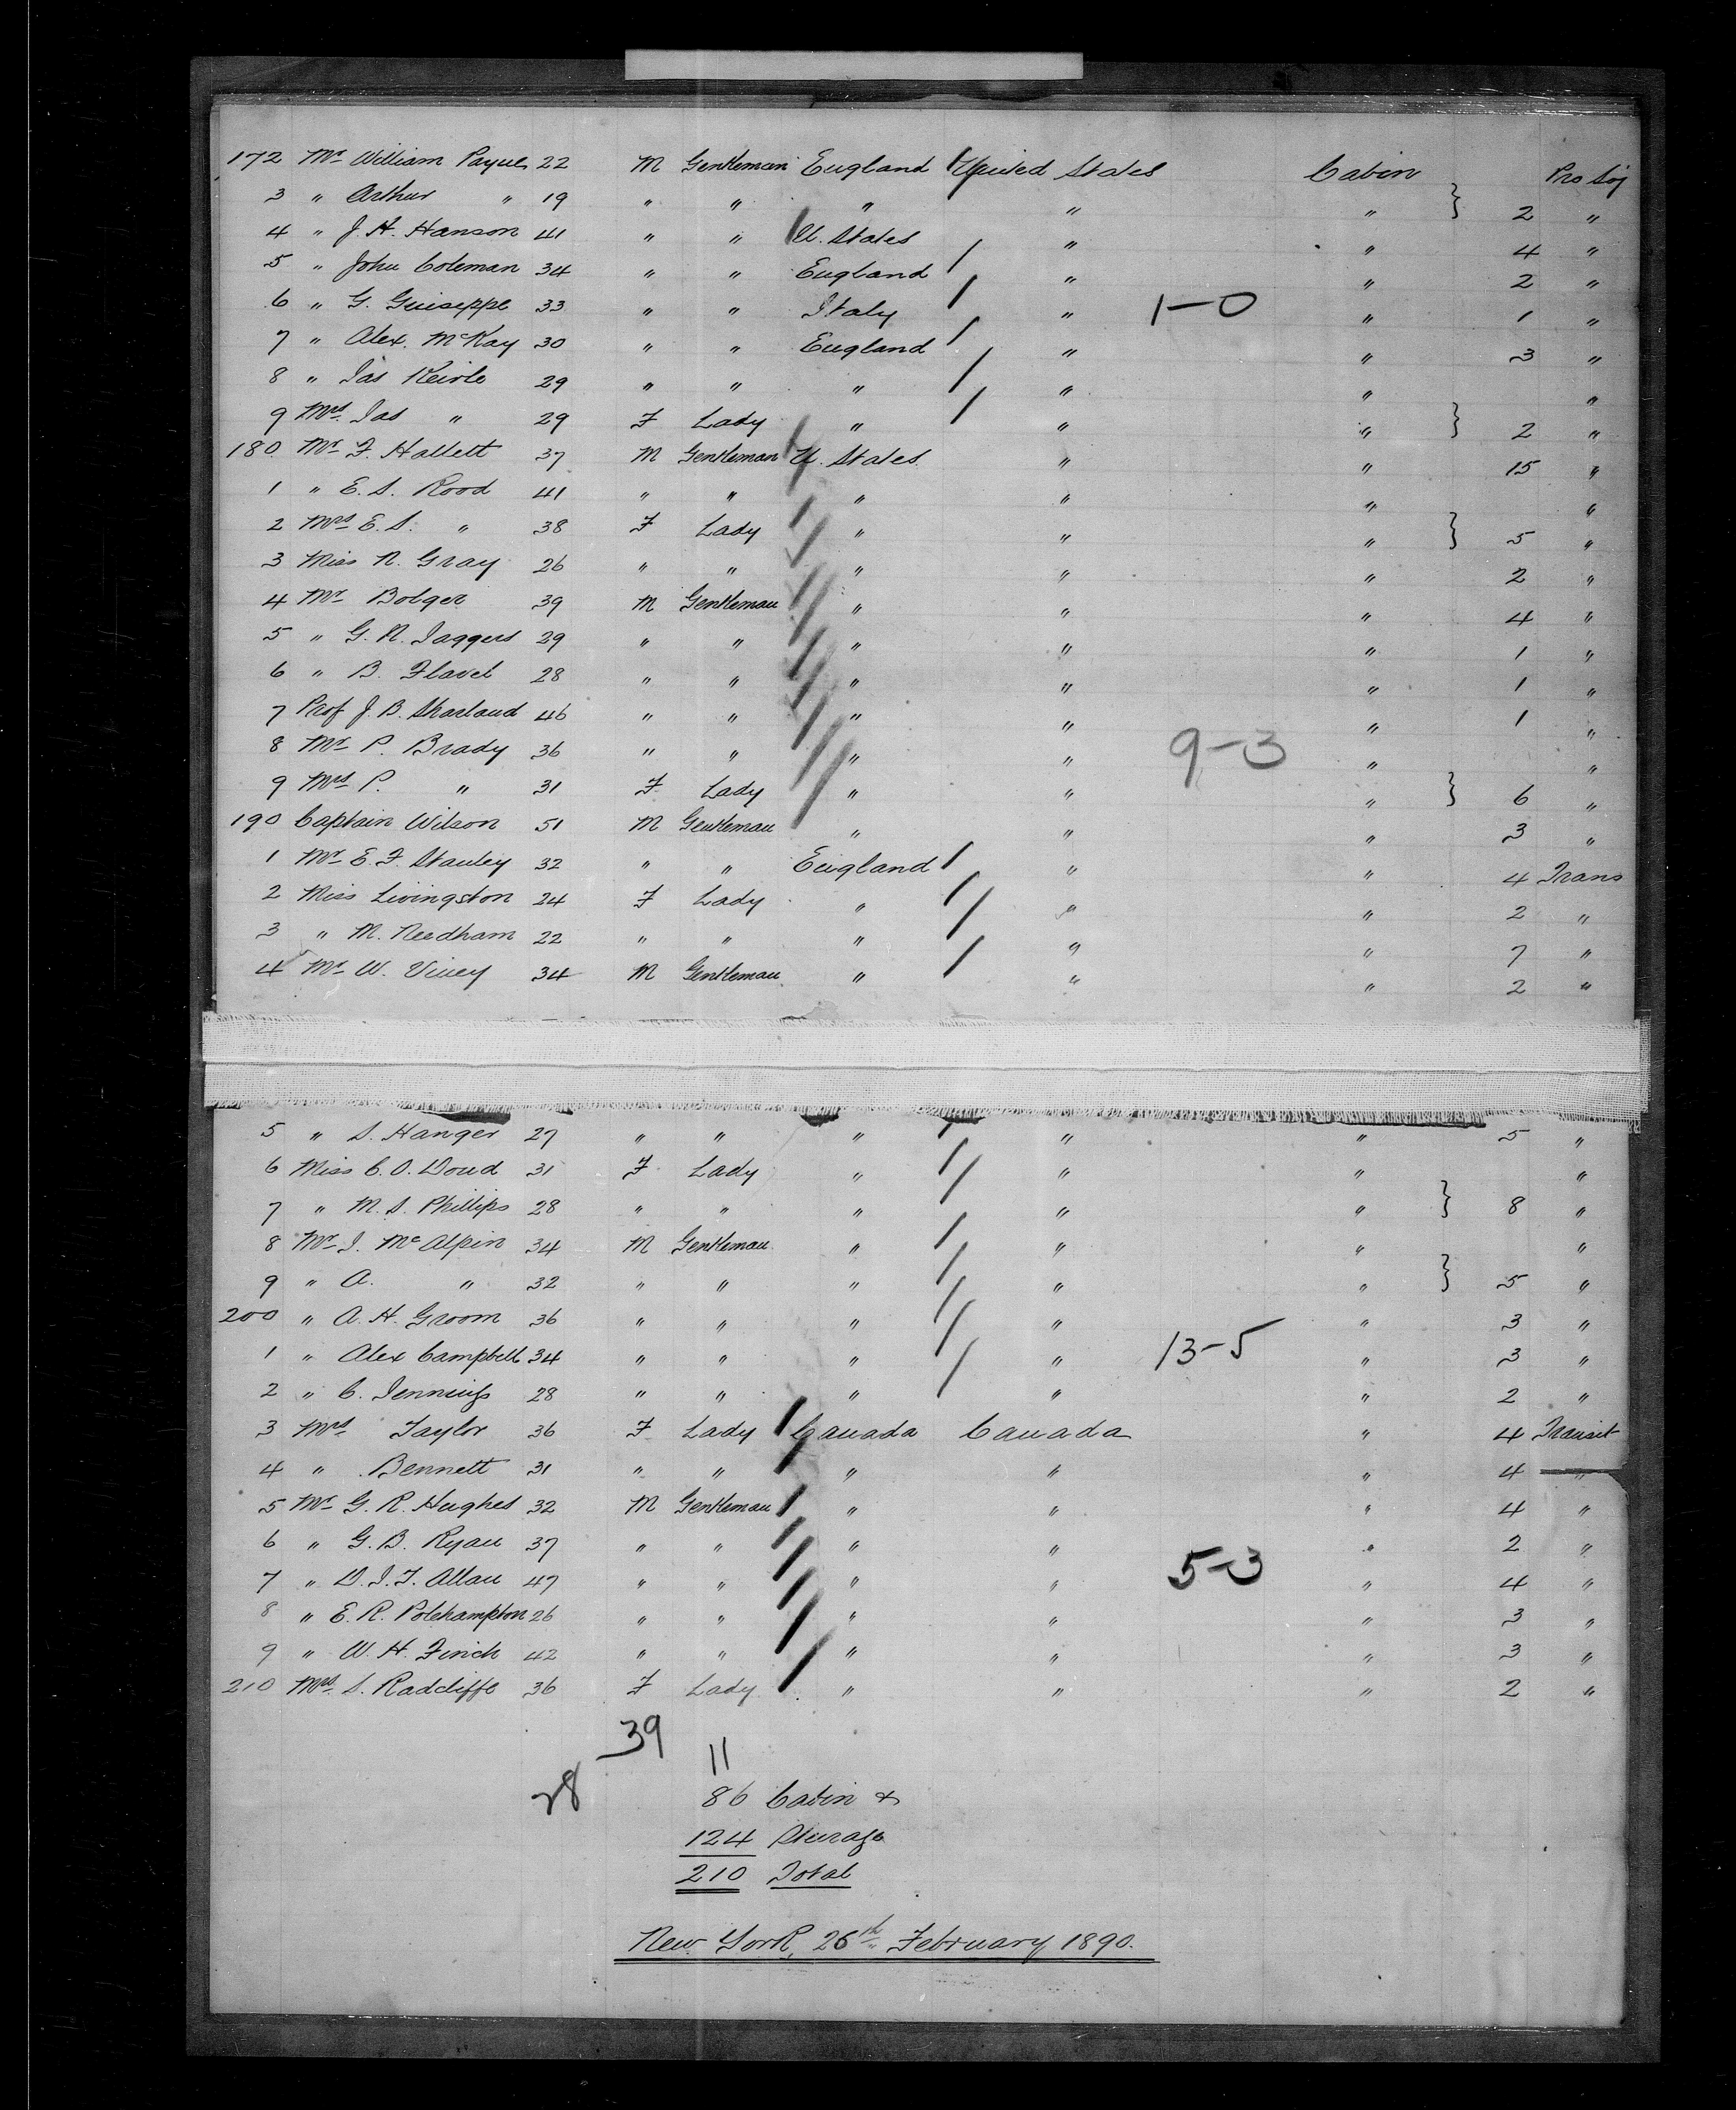 172 Mr William Payne 22 M Gentleman England United States Cabin Pro Soj
3 " Arthur " 19 " " " " " } 2 "
4 " J. H. Hanson 41 " " U. States " " 4 "
5 " John Coleman 34 " " England " " 2 "
6 " G. Guiseppe 33 " " Italy " 1-0 " 1 "
7 " Alex. McKay 30 " " England " " 3 "
8 " Jas Keirle 29 " " " " " "
9 Mrs. Jas " 29 F Lady " " " } 2 "
180 Mr F. Hallett 37 M Gentleman U. States " " 15 "
1 " E. S. Rood 41 " " " " " "
2 Mrs E. S. " 38 F Lady " " " } 5 "
3 Miss N. Gray 26 " " " " " 2 "
4 Mr Bolger 39 M Gentleman " " " 4 "
5 " G. N. Jaggers 29 " " " " " 1 "
6 " B. Flavel 28 " " " " " 1 "
7 Prof J. B. Sharland 46 " " " " " 1 "
8 Mr P. Brady 36 " " " " 9-3 " "
9 Mrs P. " 31 F Lady " " " } 6 "
190 Captain Wilson 51 M Gentleman " " " 3 "
1 Mr E. F. Stanley 32 " " England " " 4 Trans
2 Miss Livingston 24 F Lady " " " 2 "
3 " M. Needham 22 " " " " " 7 "
4 Mr W. Viney 34 M Gentleman " " " 2 "
5 " S. Hanger 27 " " " " " 5 "
6 Miss C. O. Doud 31 F Lady " " " "
7 " M. S. Phillips 28 " " " " " } 8 "
8 Mr J. McAlpin 34 M Gentleman " " " "
9 " A. " 32 " " " " " } 5 "
200 " A. H. Groom 36 " " " " " 3 "
1 " Alex Campbell 34 " " " " 13-5 " 3 "
2 " C. Jennings 28 " " " " " 2 "
3 Mrs Taylor 36 F Lady Canada Canada " 4 Transit
4 " Bennett 31 " " " " " 4 "
5 Mr G. R. Hughes 32 M Gentleman " " " 4 "
6 " G. B. Ryan 37 " " " " " 2 "
7 " D. J. T. Allan 47 " " " " 5-3 " 4 "
8 " E. R. Polehampton 26 " " " " " 3 "
9 " W. H. Finch 42 " " " " " 3 "
210 Mrs. S. Radcliffe 36 F Lady " " " 2 "
39
11
28
86 Cabin &
124 Sterage
210 Total
New York, 26th February 1890.